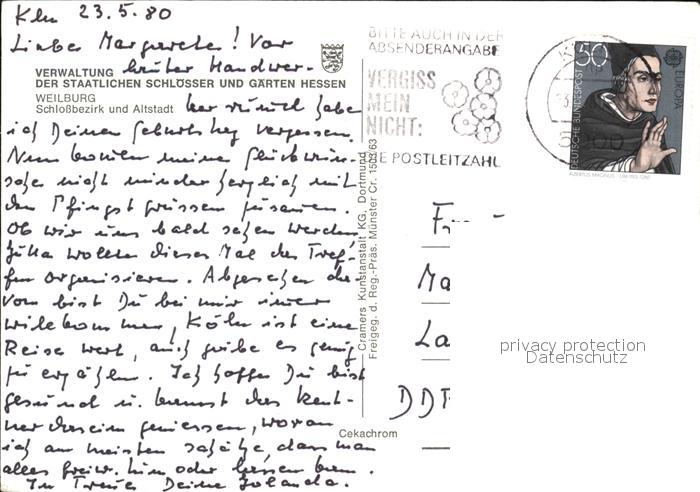 Kln 23.5.80
Liebe Margarete! Vor
lauter Handwer-
VERWALTUNG
DER STAATLICHEN SCHLÖSSER UND GÄRTEN HESSEN
WEILBURG
Schloßbezirk und Altstadt
ker habe
ich Deinen Geburtstag vergessen.
Nun kommen meine Glückwün-
sche nicht minder herzlich mit
den Pfingstgrüssen zusammen.
Ob wir uns bald sehen werden
Jutta wollte dieses Mal das Tref-
fen organisieren. Abgesehen da-
von bist Du bei mir immer
willkommen, Köln ist eine
Reise wert, auch gäbe es genug
zu erzählen. Ich hoffe Du bist
gesund u. kannst das Rent-
nerdasein geniessen, woran
ich am meisten schätze, dass man
alles freiw. tun oder lassen kann.
In Treue Deine Jolanda.
BITTE AUCH IN DER
ABSENDERANGABE
VERGISS
MEIN
NICHT:
DIE POSTLEITZAHL
50
DEUTSCHE BUNDESPOST
EUROPA
ALBERTUS MAGNUS
Cramers Kunstanstalt KG, Dortmund
Freigeg. d. Reg.-Präs. Münster Cr. 1503/63
Cekachrom
F
Ma
La
DDR
privacy protection
Datenschutz